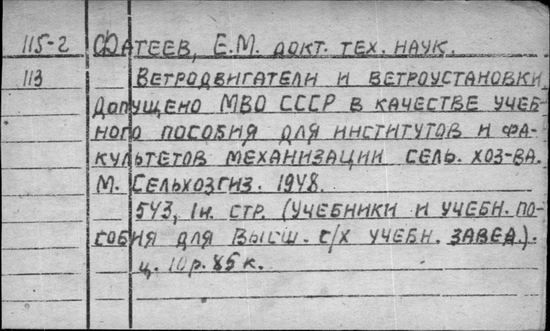 115-2 Фатеев, Е.М. докт. тех. наук.
113 Ветродвигатели и ветроустановки
Допущено МВО СССР в качестве учеб-
ного пособия для институтов и фа-
культетов механизации сель. хоз-ва.
М. Сельхозгиз. 1948.
543, 1н. стр. (Учебники и учебн. по-
собия для высш. с/х учебн. завед.).
ц. 10р. 85к.